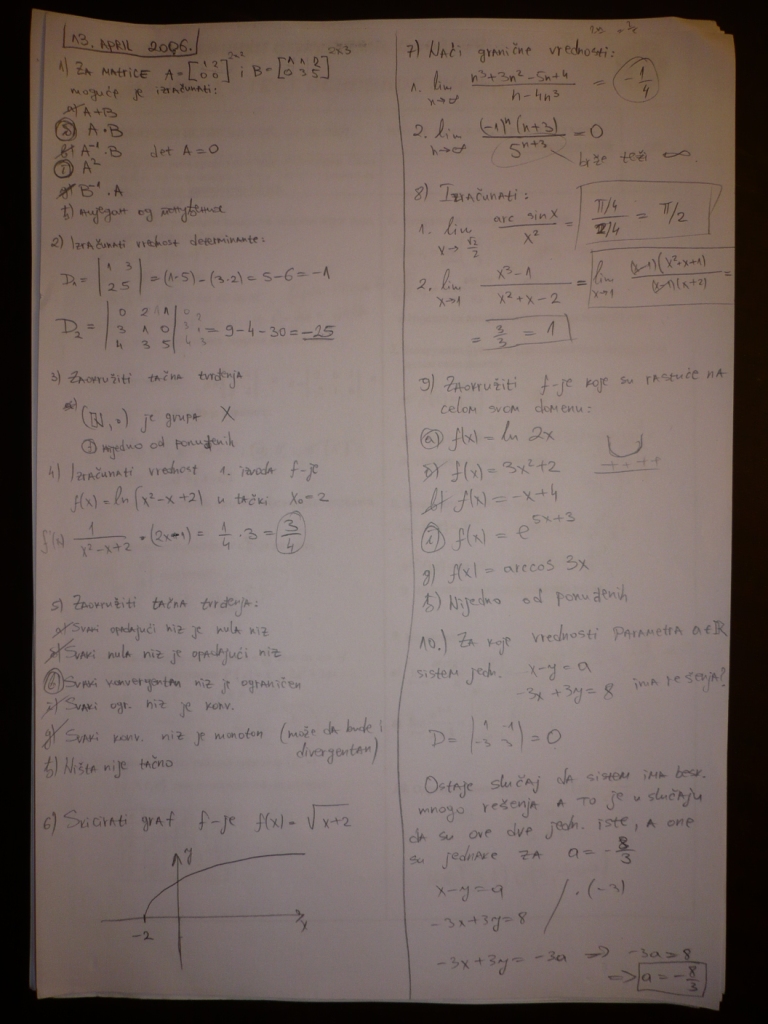 13. APRIL 2006.
1) ZA MATRICE A = [1 2; 0 0]^2x2 i B = [1 1 2; 0 3 5]^2x3
moguće je izračunati:
a) A+B
b) A·B
v) A⁻¹·B det A = 0
g) A²
d) B⁻¹·A
đ) nijedno od
2) Izračunati vrednost determinante:
D₁ = |1 3; 2 5| = (1·5) - (3·2) = 5-6 = -1
D₂ = |0 2 1; 3 1 0; 4 3 5| = 9-4-30 = -25
3) Zaokružiti tačna tvrđenja
(N, ∘) je grupa X
nijedno od ponuđenih
4) Izračunati vrednost 1. izvoda f-je
f(x) = ln(x²-x+2) u tački x₀ = 2
f(x) 1/(x²-x+2) · (2x-1) = 1/4 · 3 = 3/4
5) Zaokružiti tačna tvrđenja:
a) Svaki opadajući niz je nula niz
b) Svaki nula niz je opadajući niz
v) Svaki konvergentan niz je ograničen
g) Svaki ogr. niz je konv.
d) Svaki konv. niz je monoton (može da bude i
divergentan)
đ) Ništa nije tačno
6) Skicirati graf f-je f(x) = √(x+2)
y
-2
x
7) Naći granične vrednosti:
1. lim x→∞ (n³+3n²-5n+4)/(n-4n³) = -1/4
2. lim n→∞ (-1)ⁿ(n+3)/5ⁿ⁺³ = 0
brže teži ∞.
8) Izračunati:
1. lim x→√2/2 arc sin x/x² = (π/4)/(2/4) = π/2
2. lim x→1 (x³-1)/(x²+x-2) = lim x→1 (x-1)(x²+x+1)/(x-1)(x+2) =
= 3/3 = 1
9) Zaokružiti f-je koje su rastuće na
celom svom domenu:
a) f(x) = ln 2x
b) f(x) = 3x²+2
++ ++
v) f(x) = -x+4
g) f(x) = e^5x+3
d) f(x) = arccos 3x
đ) Nijedno od ponuđenih
10.) Za koje vrednosti parametra a∈R
sistem jedn. x-y = a
-3x+3y = 8 ima rešenja?
D = |1 -1; -3 3| = 0
Ostaje slučaj da sistem ima besk.
mnogo rešenja a to je u slučaju
da su ove dve jedn. iste, a one
su jednake za a = -8/3
x-y = a / ·(-3)
-3x+3y = 8
-3x+3y = -3a ⇒ -3a = 8
⇒ a = -8/3